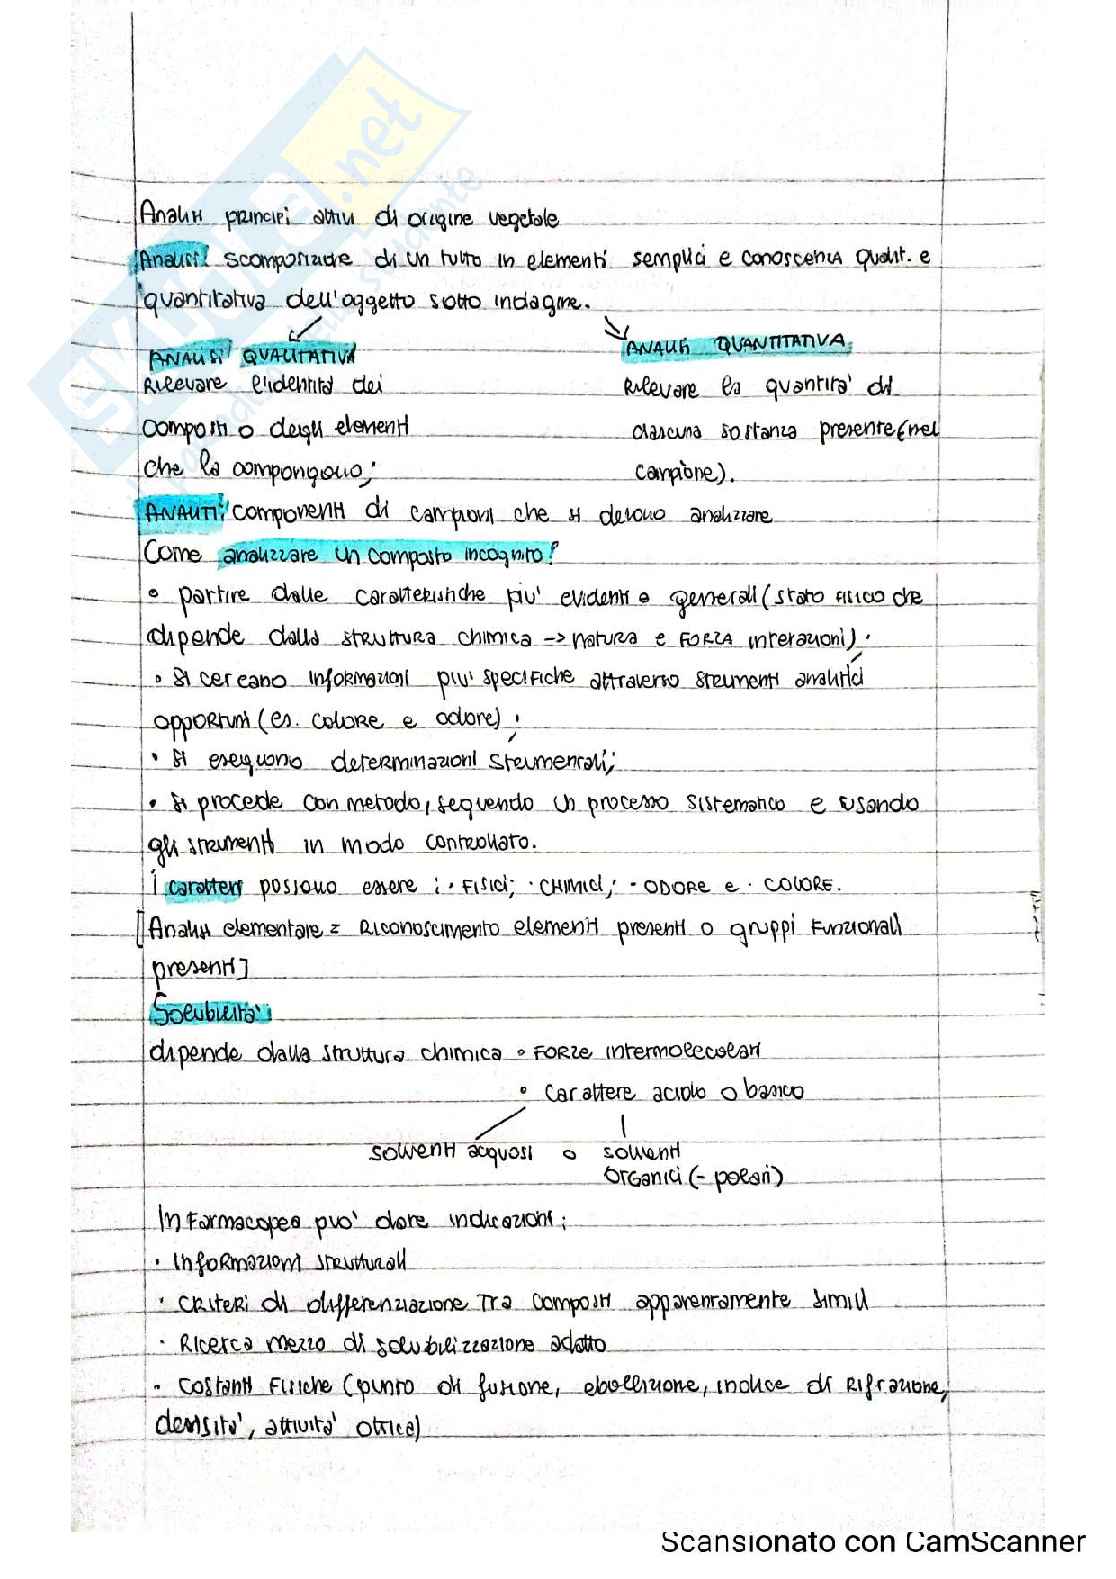 SKUOLA.net
Analisi principi attivi di origine vegetale
Analisi: scomposizione di un tutto in elementi semplici e conoscenza qualit. e
quantitativa dell'oggetto sotto indagine.
ANALISI QUALITATIVA
Rilevare l'identità dei
composti o degli elementi
che la compongono;
ANALISI QUANTITATIVA:
Rilevare la quantità di
ciascuna sostanza presente (nel
campione).
ANALITI: componenti di campioni che si devono analizzare
Come analizzare un composto incognito?
• partire dalle caratteristiche più evidenti e generali (stato fisico che
dipende dalla struttura chimica -> natura e forza interazioni).
• Si cercano informazioni più specifiche attraverso strumenti analitici
opportuni (es. colore e odore);
• Si eseguono determinazioni strumentali;
• Si procede con metodo, seguendo un processo sistematico e usando
gli strumenti in modo controllato.
I caratteri possono essere: • FISICI; • CHIMICI; • ODORE e • COLORE.
[Analisi elementare = Riconoscimento elementi presenti o gruppi funzionali
presenti]
Solubilità:
dipende dalla struttura chimica • Forze intermolecolari
• carattere acido o basico
solventi acquosi o solventi
organici (- polari)
In Farmacopea può dare indicazioni:
• Informazioni strutturali
• Criteri di differenziazione tra composti apparentemente simili
• Ricerca mezzo di solubilizzazione adatto
• Costanti Fisiche (punto di fusione, ebollizione, indice di rifrazione,
densità, attività ottica)
Scansionato con CamScanner